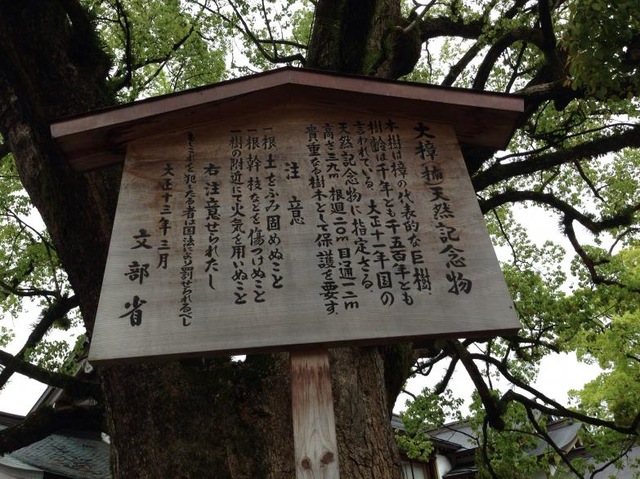 大樟樹天然記念物
本樹は樟の代表的な巨樹、
樹齢は千年とも千五百年とも
言われている。大正十一年国の
天然記念物に指定さる。
高さ三九m根廻二〇m目通一二m
貴重なる樹木として保護を要す。
注意
一根土をふみ固めぬこと
一根幹枝などを傷つけぬこと
一樹の附近にて火気を用いぬこと
右注意せられたし
もしこれを犯したる者は国法により罰せられるべし
大正十三年三月
文部省